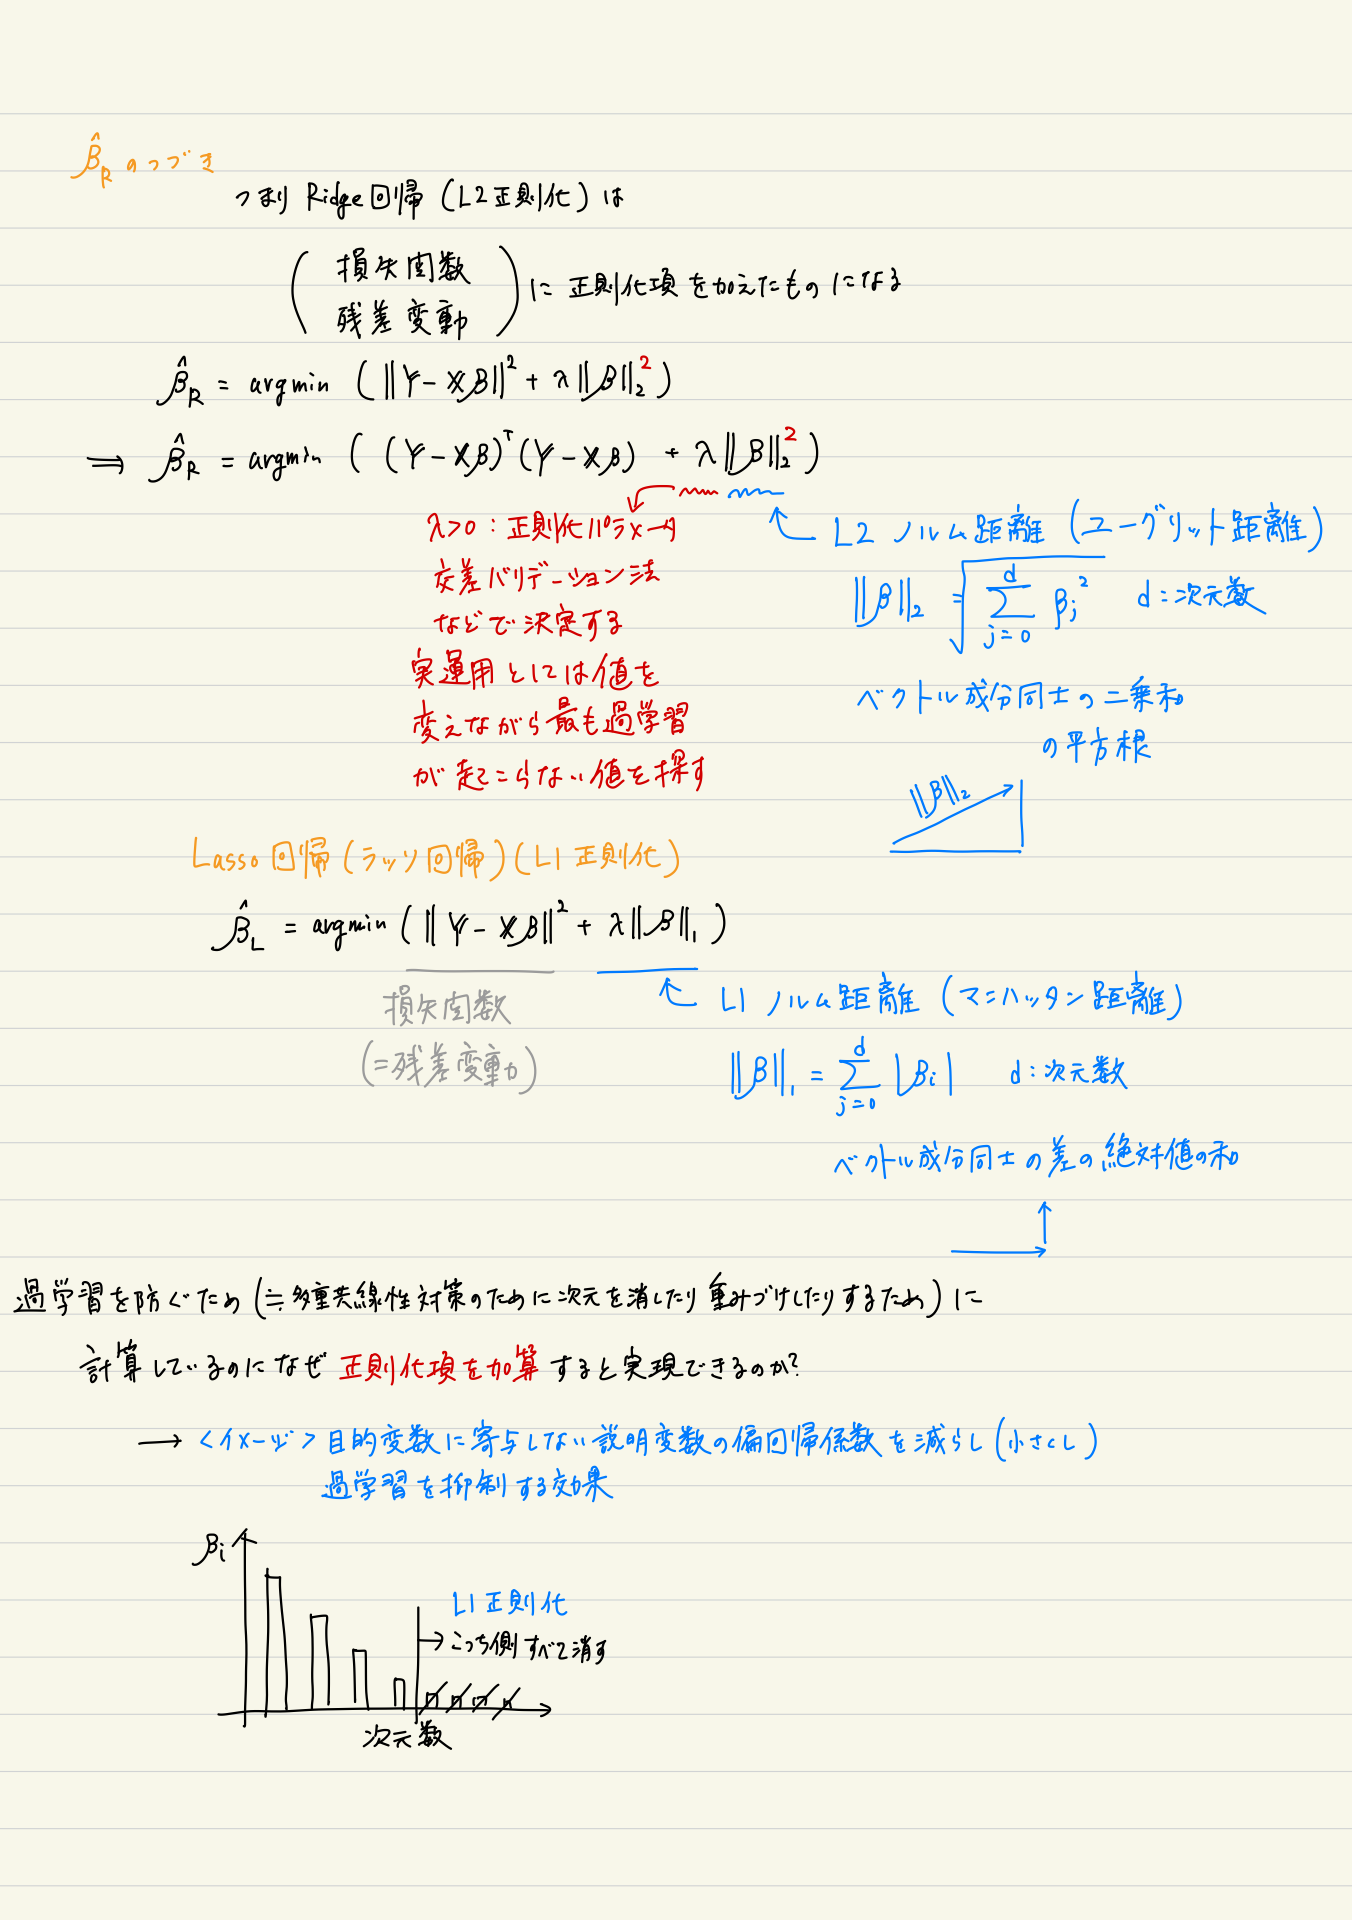 β̂_R のつづき
つまり Ridge回帰 (L2正則化) は
(損失関数
残差変動) に 正則化項 を加えたものになる
β̂_R = argmin (‖Y-Xβ‖² + λ‖β‖₂²)
⟹ β̂_R = argmin ( (Y-Xβ)ᵀ(Y-Xβ) + λ‖β‖₂²)
λ>0 : 正則化パラメータ
交差バリデーション法
などで決定する
実運用としては値を
変えながら最も過学習
が起こらない値を探す
L2 ノルム距離 (ユークリッド距離)
‖β‖₂ = √(∑_{j=0}^{d} β_j²) d:次元数
ベクトル成分同士の二乗和
の平方根
‖β‖₂
Lasso 回帰 (ラッソ回帰) (L1 正則化)
β̂_L = argmin (‖Y-Xβ‖² + λ‖β‖₁)
損失関数
(=残差変動)
L1 ノルム距離 (マンハッタン距離)
‖β‖₁ = ∑_{j=0}^{d} |β_i| d:次元数
ベクトル成分同士の差の絶対値の和
過学習を防ぐため (≒多重共線性対策のために次元を消したり重みづけしたりするため) に
計算しているのになぜ 正則化項を加算 すると実現できるのか?
→ <イメージ> 目的変数に寄与しない説明変数の偏回帰係数を減らし (小さくし)
過学習を抑制する効果
β_i
L1 正則化
→ こっち側すべて消す
次元数